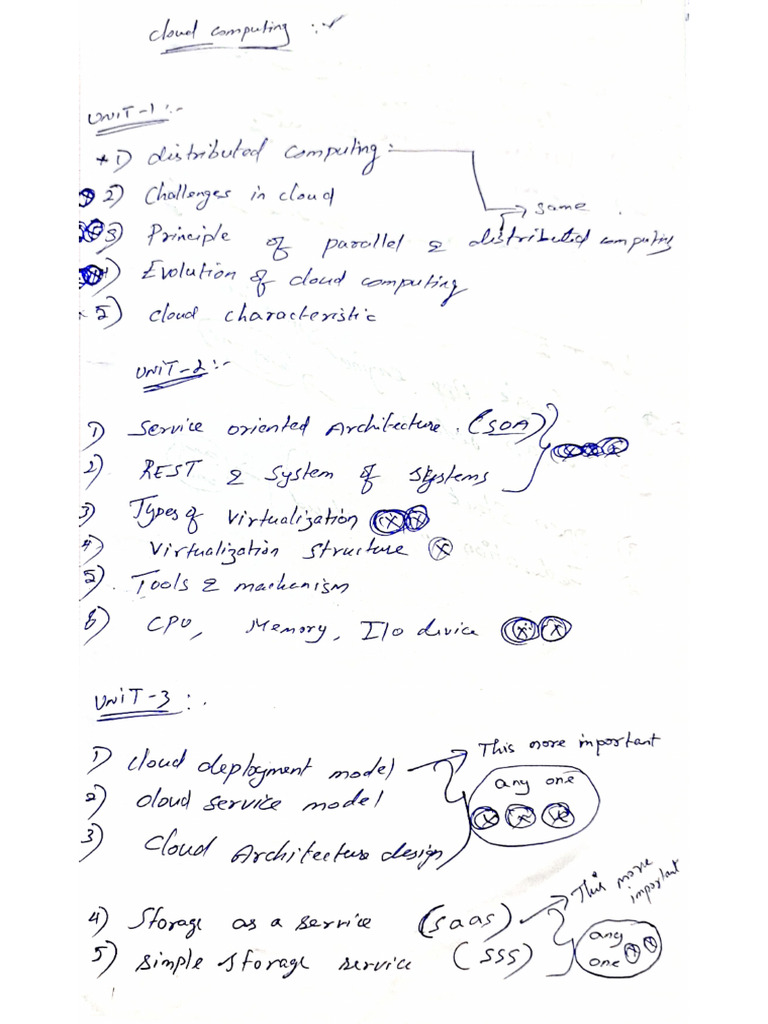 cloud computing :-
UNIT-1 :-
* 1) distributed computing :-
2) Challenges in cloud
→ same
3) Principle of parallel & distributed computing
4) Evolution of cloud computing
5) cloud characteristic
UNIT-2 :-
1) Service oriented Architecture. (SOA)
2) REST & System of systems
3) Types of virtualization
4) Virtualization structure
5) Tools & mechanism
6) CPU, Memory, I/o divice
UNIT-3 :-
1) cloud deployment model → This more important
any one
2) cloud service model
3) Cloud Architecture design
This more important
4) Storage as a service (saas)
any one
5) simple storage service (SSS)